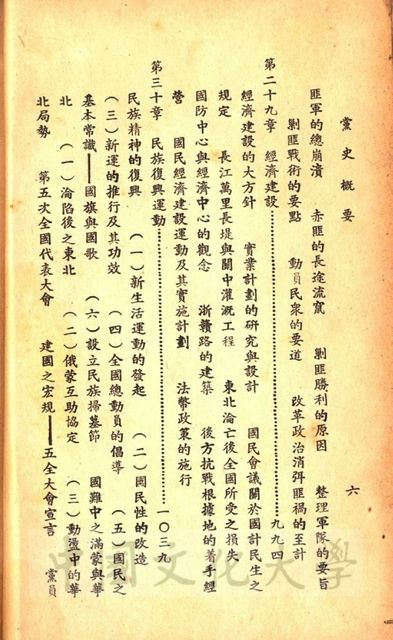 黨史概要
六
匪軍的總崩潰　赤匪的長途流竄　剿匪勝利的原因　整理軍隊的要旨
剿匪戰術的要點　動員民衆的要道　改革政治消弭匪禍的至計
第二十九章　經濟建設…………九九四
經濟建設的大方針　實業計劃的研究與設計　國民會議關於國計民生之
規定　長江萬里長堤與關中灌溉工程　東北淪亡後全國所受之損失
國防中心與經濟中心的觀念　浙贛路的建築　後方抗戰根據地的着手經
營　國民經濟建設運動及其實施計劃　法幣政策的施行
第三十章　民族復興運動…………一〇三九
民族精神的復興　（一）新生活運動的發起　（二）國民性的改造
（三）新運的推行及其功效　（四）全國總動員的倡導　（五）國民之
基本常識——國旗與國歌　（六）設立民族掃墓節　國難中之滿蒙與華
北　（一）淪陷後之東北　（二）俄蒙互助協定　（三）動盪中的華
北局勢　第五次全國代表大會　建國之宏規——五全大會宣言　黨員
中國文化大學